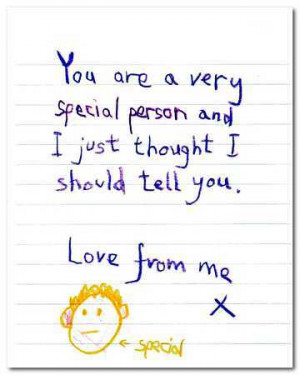 You are a very
special person and
I just thought I
should tell you.
Love from me
X
← special